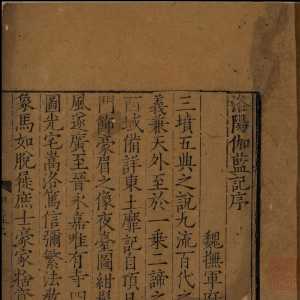 洛陽伽藍記序
魏撫軍府
三墳五典之說九流百代之
義兼天外至於一乘二諦之
西域備詳東土靡記自項日
門飾豪眉之像夜臺圖紺髮
風遂廣至晉永嘉唯有寺四
圖光宅嵩洛篤信彌繁法教
象馬如脫屣庶士豪家捨資